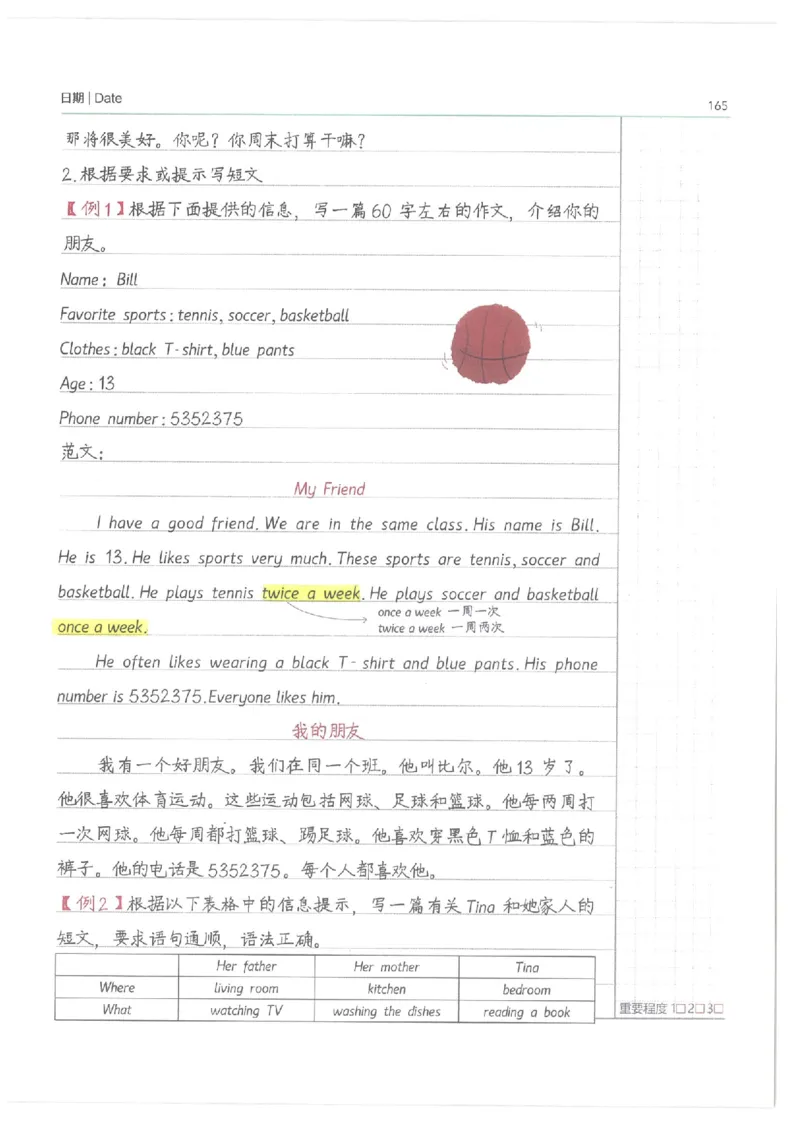 日期 | Date
165
那将很美好。你呢？你周末打算干嘛？
2.根据要求或提示写短文
【例1】根据下面提供的信息，写一篇60字左右的作文，介绍你的
朋友。
Name: Bill
Favorite sports: tennis, soccer, basketball
Clothes: black T-shirt, blue pants
Age: 13
Phone number: 5352375
范文：
My Friend
I have a good friend. We are in the same class. His name is Bill.
He is 13. He likes sports very much. These sports are tennis, soccer and
basketball. He plays tennis twice a week. He plays soccer and basketball
once a week 一周一次
once a week.
twice a week 一周两次
He often likes wearing a black T-shirt and blue pants. His phone
number is 5352375. Everyone likes him.
我的朋友
我有一个好朋友。我们在同一个班。他叫比尔。他13岁了。
他很喜欢体育运动。这些运动包括网球、足球和篮球。他每两周打
一次网球。他每周都打篮球、踢足球。他喜欢穿黑色T恤和蓝色的
裤子。他的电话是5352375。每个人都喜欢他。
【例2】根据以下表格中的信息提示，写一篇有关Tina和她家人的
短文，要求语句通顺，语法正确。
Her father Her mother Tina
Where living room kitchen bedroom
What watching TV washing the dishes reading a book
重要程度 1□ 2□ 3□